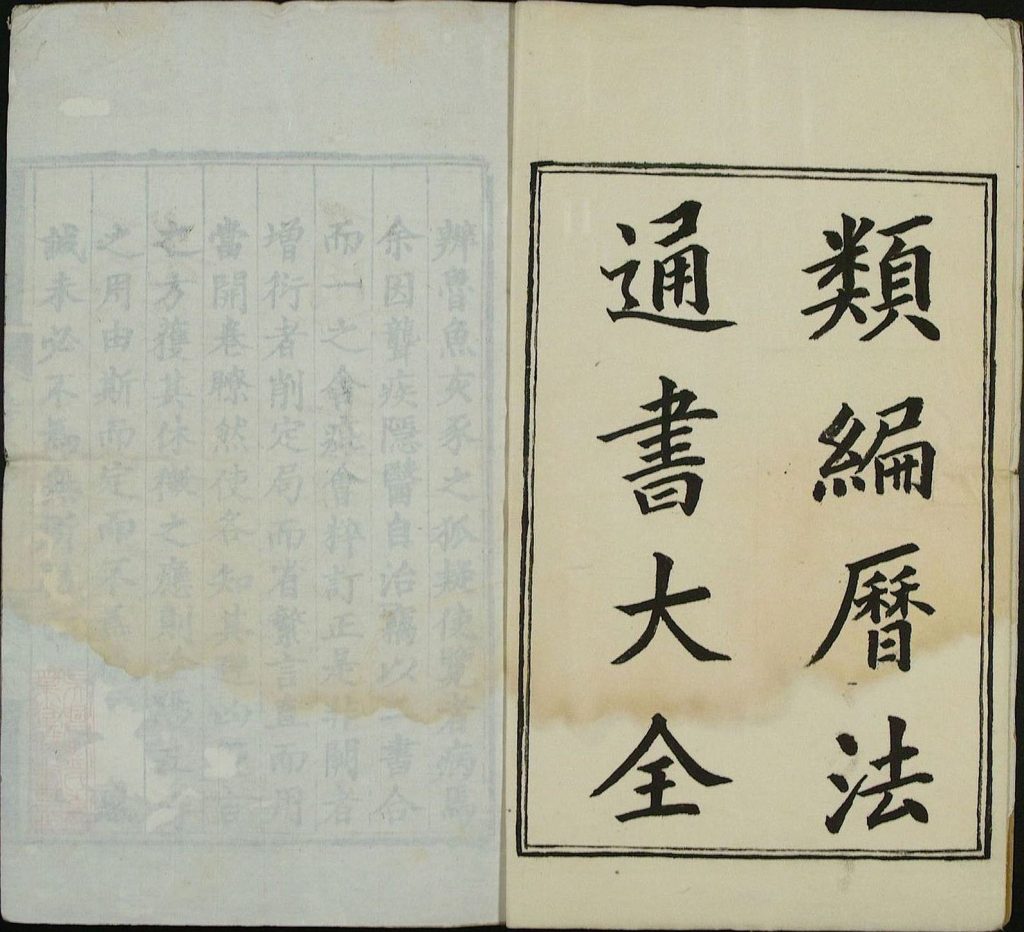 類編曆法
通書大全
辨魯魚亥豕之狐疑使覽者病焉
余因聾疾隱醫自治竊以二書合
而一之會粹訂正是非闕者
增衍者削定局而省繁言直而用
當開卷瞭然使各知其
也方獲其休徵之應則
之用由斯而定而不
誠未必不